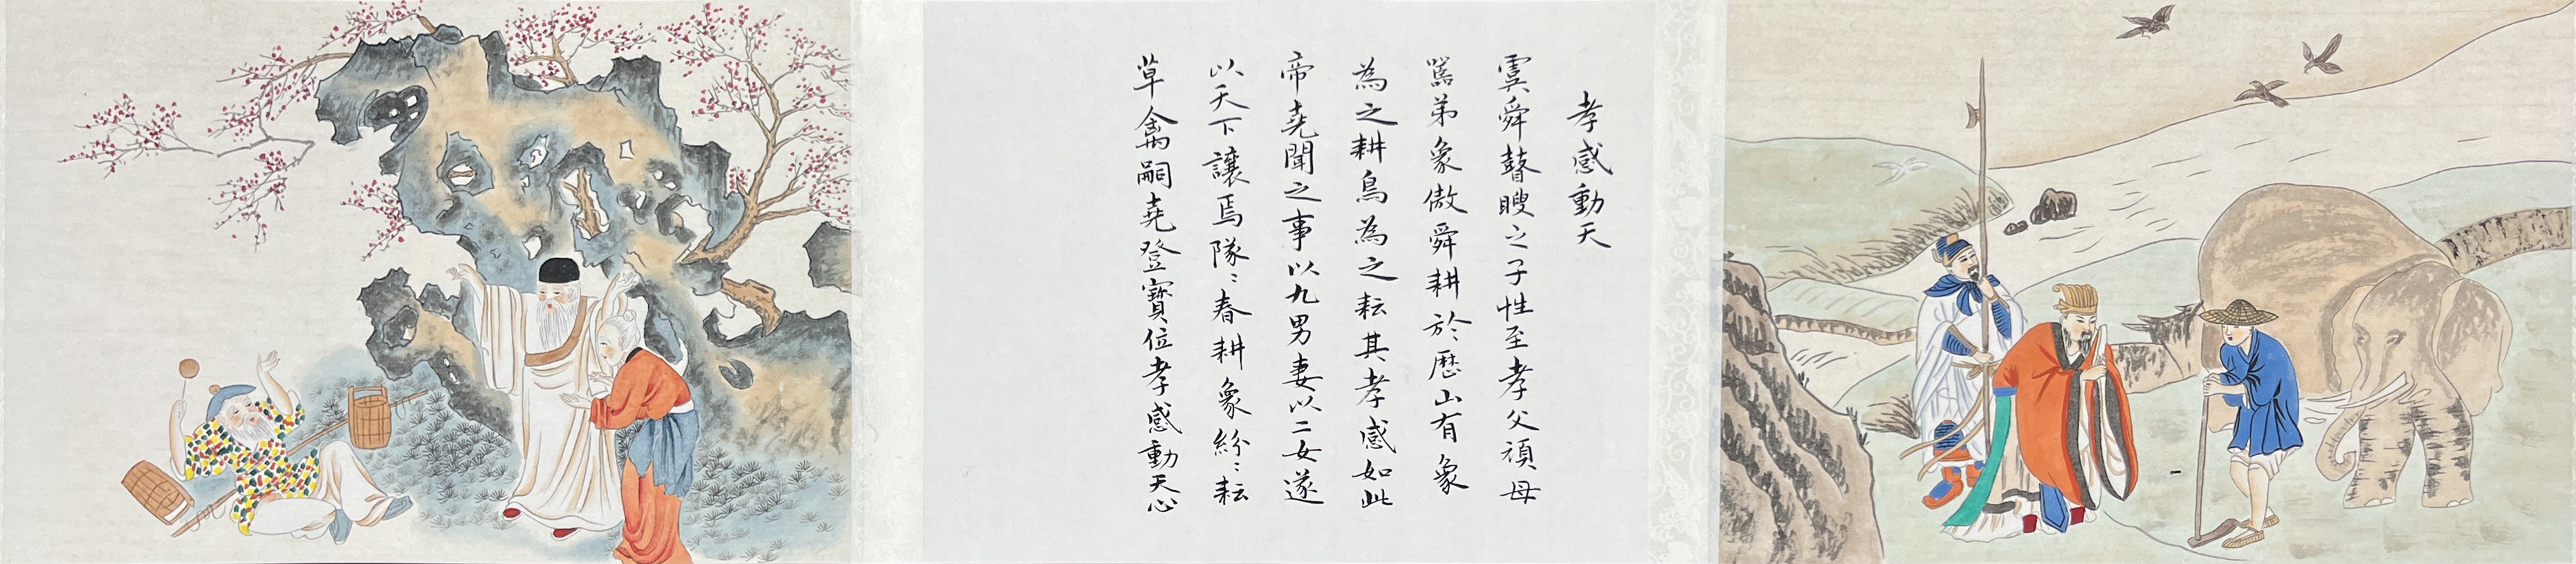 孝感動天
虞舜瞽瞍之子性至孝父頑母
嚚弟象傲舜耕於歷山有象
為之耕鳥為之耘其孝感如此
帝堯聞之事以九男妻以二女遂
以天下讓焉隊〻春耕象紛〻耘
草禽嗣堯登寶位孝感動天心